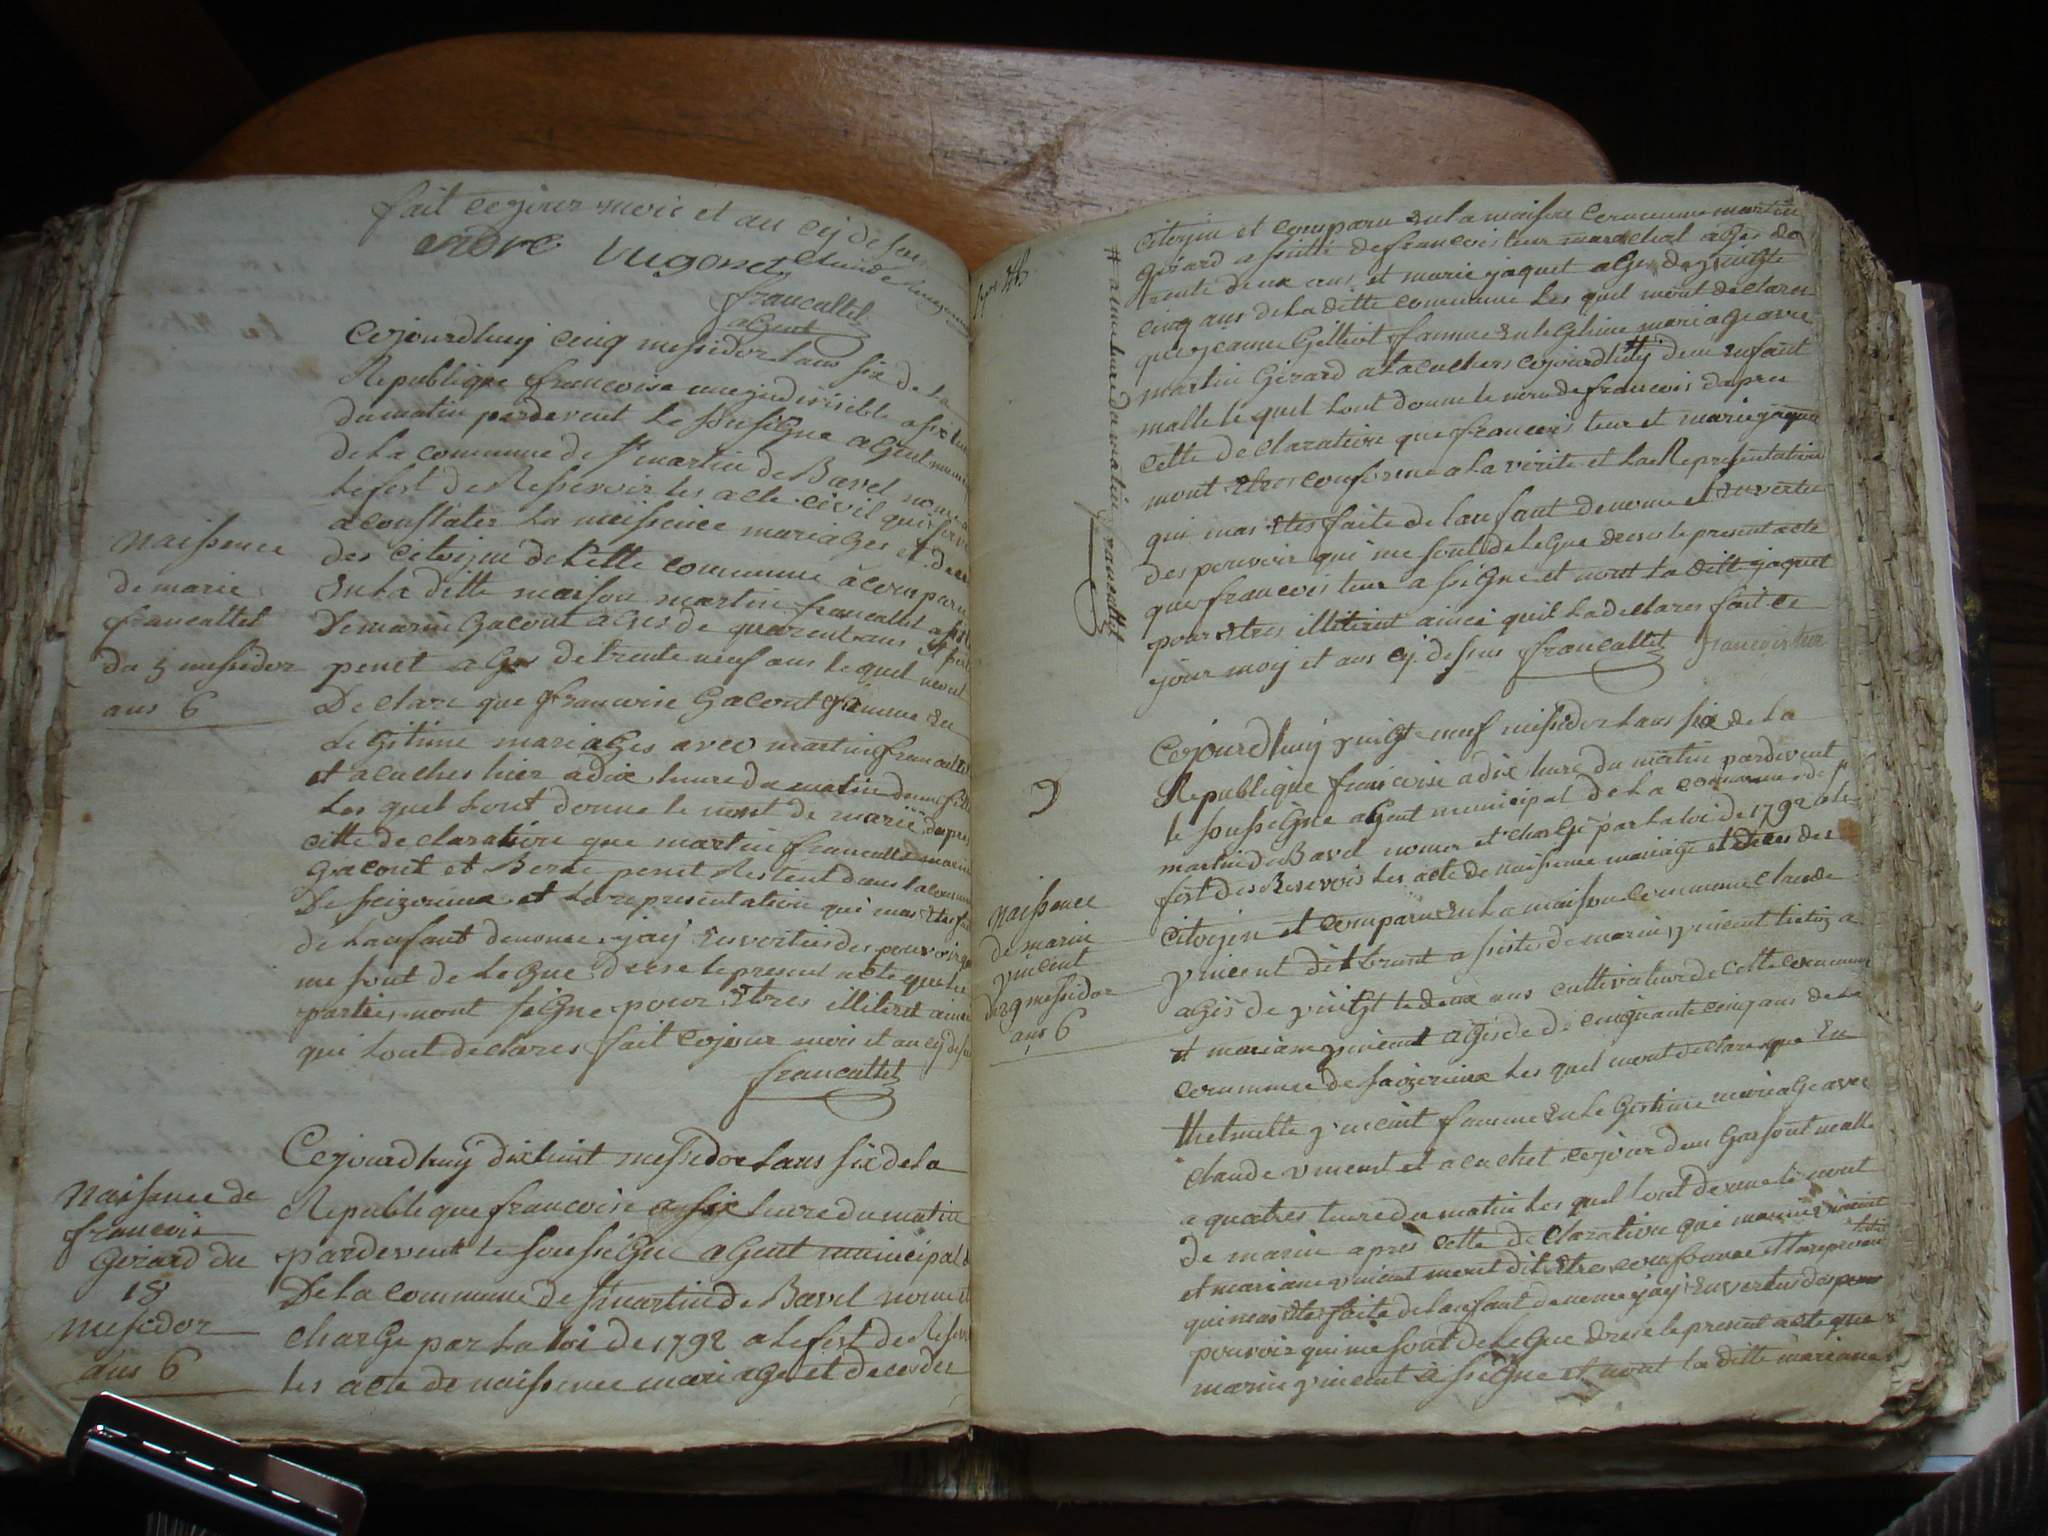 fait cejour mois et an cy desus
andre Vugonet Claude
francallet
agent
Cejourdhuy cinq messidor lans six de la
Republique francoise une indivisible a six
du matin pardevent le sousigne agent
de la commune de st martin de Bavel nomé
lefest de Ressevoir les acte civil qui
a constater la naissence mariages et
des citoijin de cette commune a comparu
en la dette maison martin francallet
De marin Gacont agés de quarent ans et
penet agés de trente neuf ans lequel mont
Declare que francoise Gacont famme en
Legitime mariages avec martin francallet
et acuches hier a dix heure du matin dune fille
Les quel Lont donne le nont de marie dapres
cette declaration que martin francallet marin
Gacont et penet Restent dans la
De seizerieux et la representation qui mas etes
de Lanfant denome jaij en vertus des pouvoir
me sont delegue dresse le present acte que les
parties nont signe pour etres illiteret aincé
qui Lont declares fait cejour mois et an cy desus
francallet
Naissence
de marie
francallet
du 5 messidor
ans 6
Cejourdhuy dixhuit messidor Lans six de la
Republique francoise a six heure du matin
pardevent le soussigne agent municipal
De la commune de st martin de Bavel nomé et
charge par la loi de 1792 a lefest de
les acte de naissence mariage et deces des
Naissence de
francois
Girard du
18
messidor
ans 6
citoijin et comparu en la maison commune martin
Girard a sisté de francois teur marechal agés de
trente deux ans et marie jaquet agés de vingt
cinq ans de la dette commune Les quel mont declares
que jeanne Gelliot famme en legitime mariage avec
martin Girard a lacuchers cejourdhuy dun enfant
malle le quel Lont donne le nom de francois dapres
cette declaration que francois teur et marie jaquet
mont etres conforme a la verite et la Representation
qui mas etes faite de lanfant denome et en vertu
des pouvoir qui me sont delegue dresse le present acte
que francois teur a signe et nont la ditte jaquet
pour etres illiteret aincé quil la declares fait ce
jour moy et ans cy desus francallet francois teur
# a une heure du matin francallet
Cejourdhuy vingt neuf messidor Lans six de la
Republique francoise a dix heure du matin pardevent
le soussigne agent municipal de la commune de st
martin de Bavel nomer et charge par la loi de 1792 a le
fest des Resevois Les acte de naissence mariage et deces des
citoijen et comparu en la maison commune claude
vincent dit brunt a sisté de marin vincent
agés de vingt le deux ans cultivateur de cette commune
et mariane vincent agés de cinquante cinq ans de la
commune de seizerieux Les quel mont declares que
vincent famme en legistime mariage avec
claude vincent et a cuchet cejour dun garsont malle
a quatres heure du matin Les quel Lont donne le nont
de marin apres cette declaration que marin vincent
et mariane vincent mont dit etres conforme et la represent
qui mas etes faite de lanfant denome jaij en vertus des
pouvoir qui me sont delegue dresse le present acte que
marin vincent a signe et nont la ditte mariane
9
Naissence
de marin
vincent
du 29 messidor
ans 6